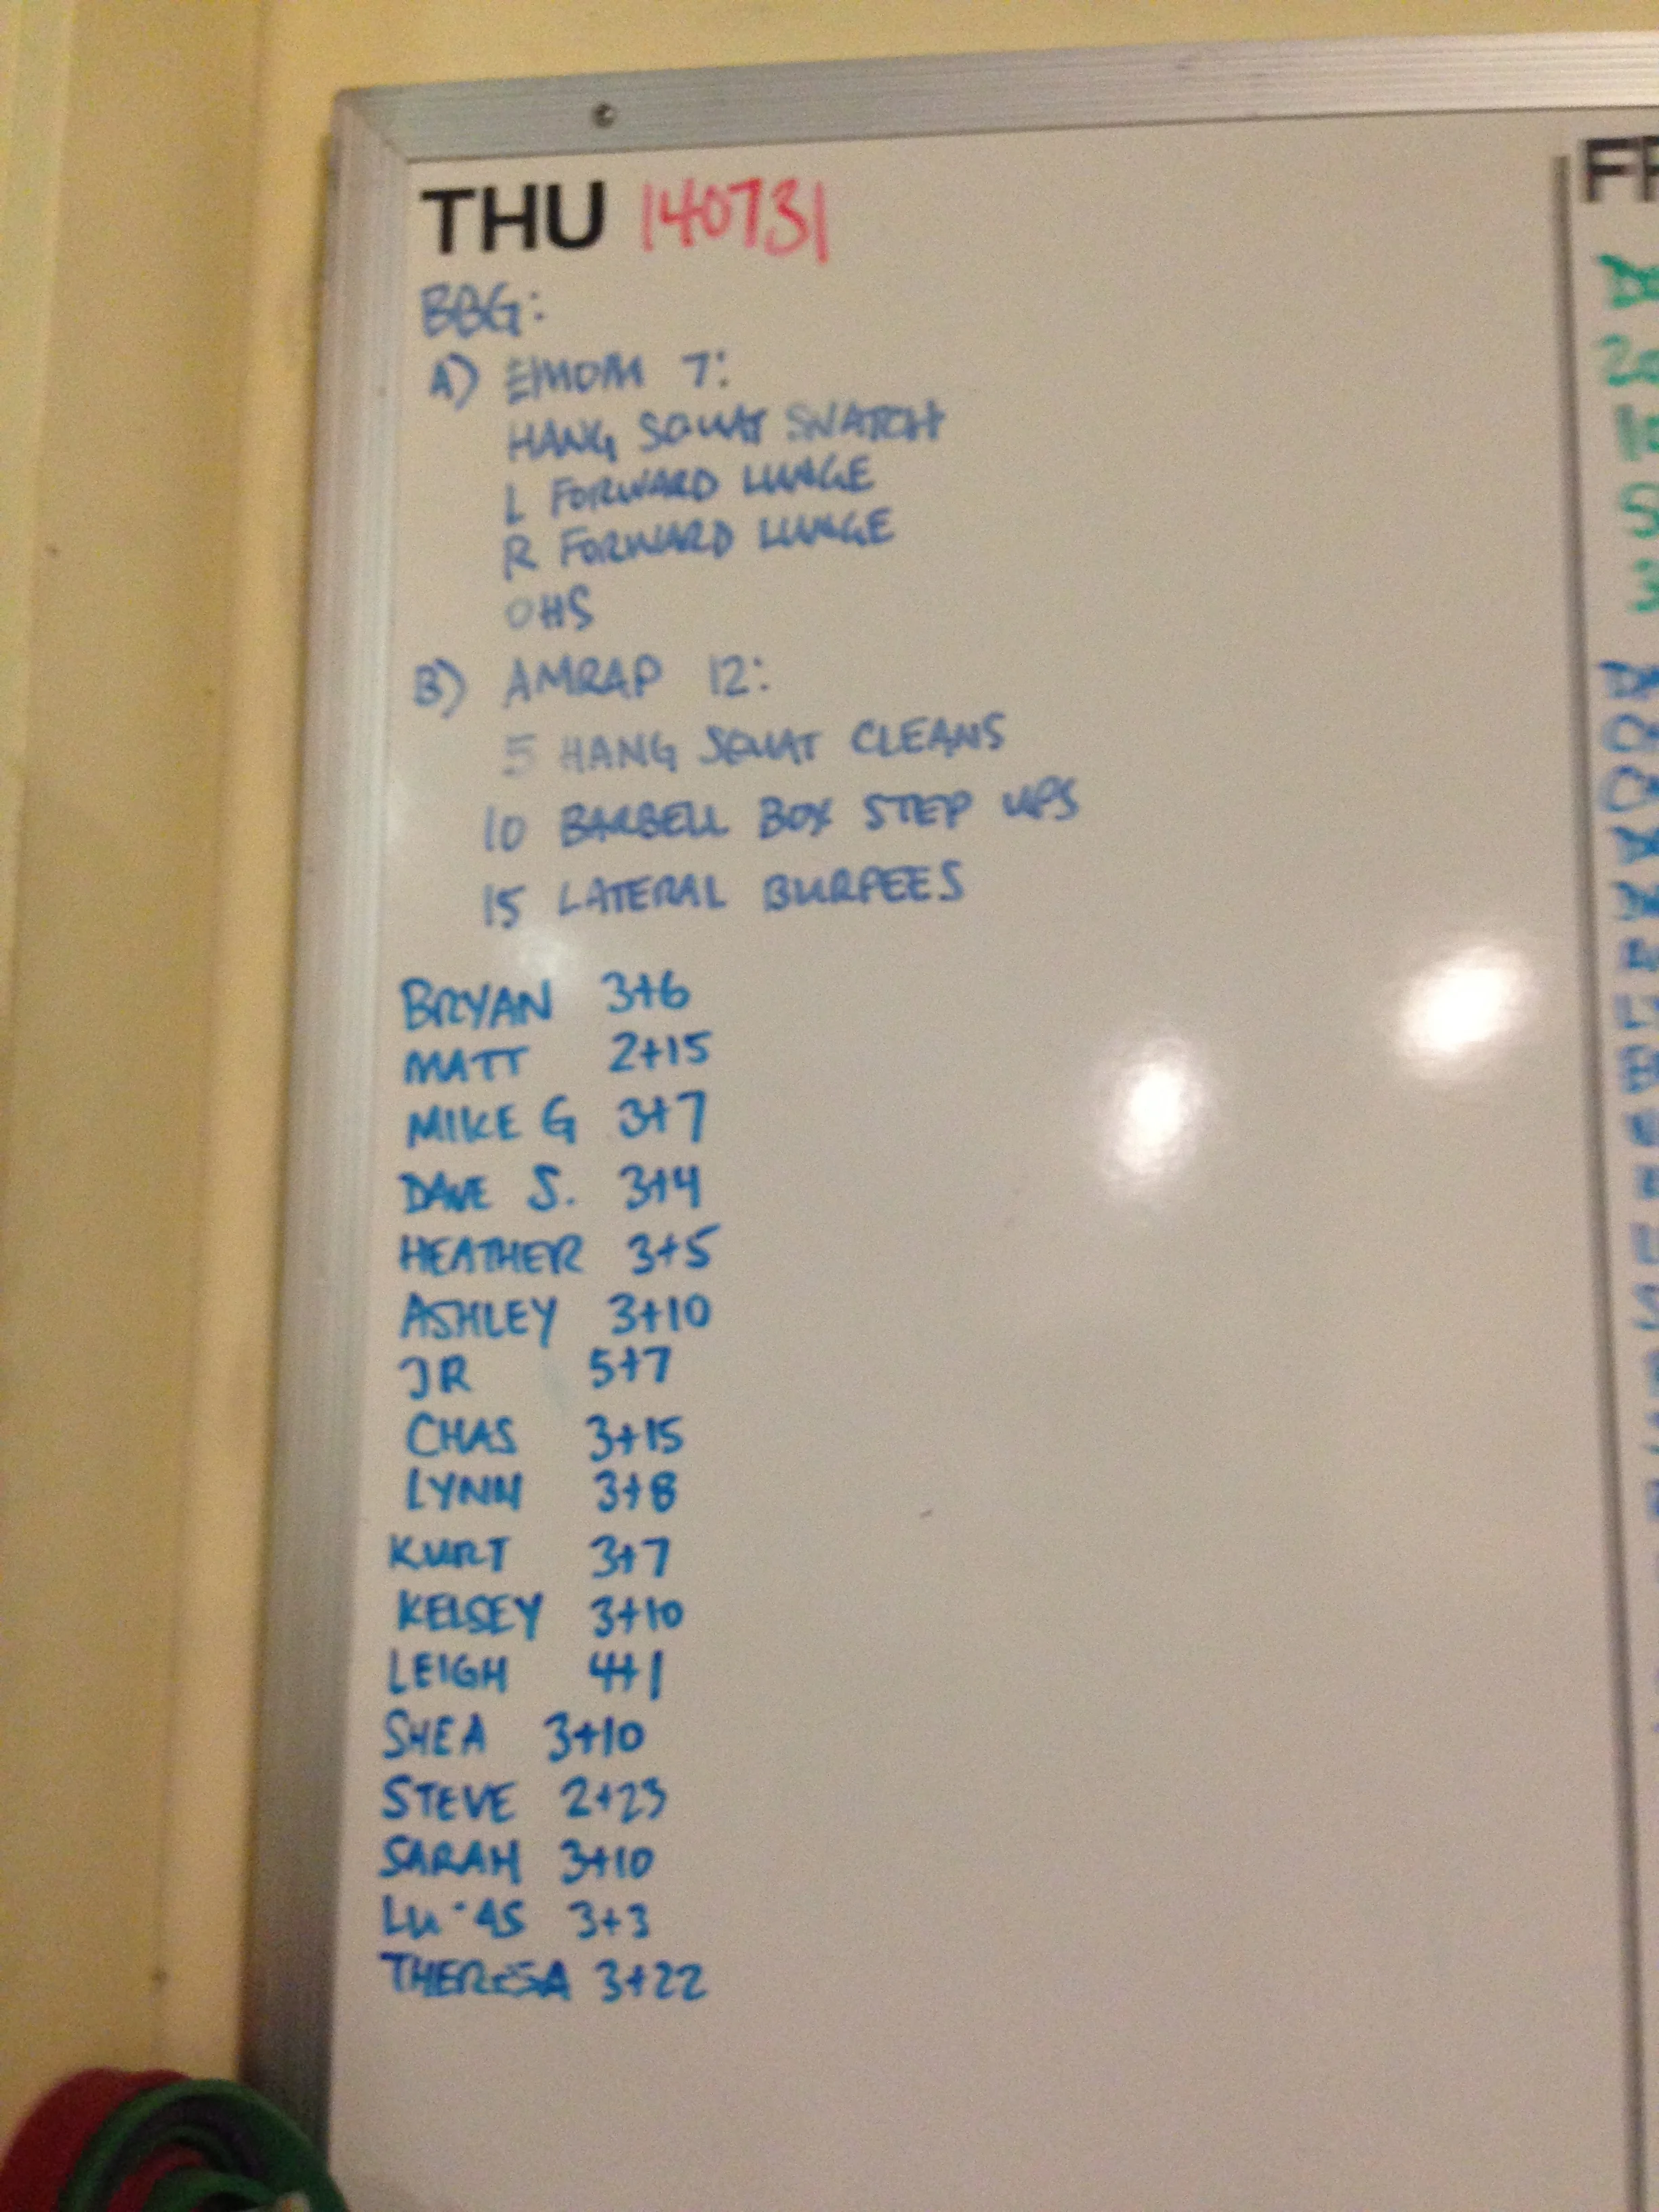 THU 140731
BBG:
A) EMOM 7:
HANG SQUAT SNATCH
L FORWARD LUNGE
R FORWARD LUNGE
OHS
B) AMRAP 12:
5 HANG SQUAT CLEANS
10 BARBELL BOX STEP UPS
15 LATERAL BURPEES
BRYAN 3+6
MATT 2+15
MIKE G 3+7
DAVE S. 3+4
HEATHER 3+5
ASHLEY 3+10
JR 5+7
CHAS 3+15
LYNN 3+8
KURT 3+7
KELSEY 3+10
LEIGH 4+1
SHEA 3+10
STEVE 2+23
SARAH 3+10
3+3
THERESA 3+22